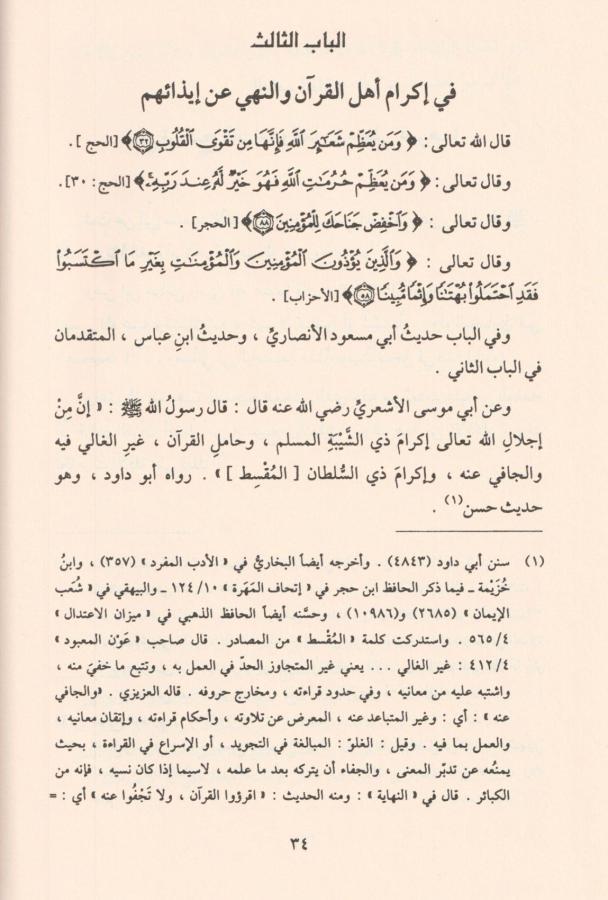 الباب الثالث
في إكرام أهل القرآن والنهي عن إيذائهم
قال الله تعالى : ﴿ وَمَن يُعَظِّمْ شَعَائِرَ اللَّهِ فَإِنَّهَا مِن تَقْوَى الْقُلُوبِ ﴿٣٢﴾﴾ [الحج] .
وقال تعالى : ﴿ وَمَن يُعَظِّمْ حُرُمَاتِ اللَّهِ فَهُوَ خَيْرٌ لَّهُ عِندَ رَبِّهِ ﴾ [الحج: ٣٠].
وقال تعالى : ﴿ وَاخْفِضْ جَنَاحَكَ لِلْمُؤْمِنِينَ ﴿٨٨﴾﴾ [الحجر] .
وقال تعالى : ﴿ وَالَّذِينَ يُؤْذُونَ الْمُؤْمِنِينَ وَالْمُؤْمِنَاتِ بِغَيْرِ مَا اكْتَسَبُوا
فَقَدِ احْتَمَلُوا بُهْتَانًا وَإِثْمًا مُّبِينًا ﴿٥٨﴾﴾ [الأحزاب] .
وفي الباب حديثُ أبي مسعود الأنصاريِّ ، وحديثُ ابنِ عباس ، المتقدمان
في الباب الثاني .
وعن أبي موسى الأشعريِّ رضي الله عنه قال : قال رسولُ الله ﷺ : « إنَّ مِنْ
إجلالِ الله تعالى إكرامَ ذي الشَّيْبَةِ المسلم ، وحاملِ القرآن ، غيرِ الغالي فيه
والجافي عنه ، وإكرامَ ذي السُّلطان [ المُقْسِط ] » . رواه أبو داود ، وهو
حديث حسن(١) .
(١) سنن أبي داود (٤٨٤٣) . وأخرجه أيضاً البخاريُّ في « الأدب المفرد » (٣٥٧) ، وابنُ
خُزَيْمة ـ فيما ذكر الحافظ ابن حجر في « إتحاف المَهَرة » ١٠/ ١٢٤ ـ والبيهقي في « شُعَب
الإيمان » (٢٦٨٥) و(١٠٩٨٦) ، وحسَّنه أيضاً الحافظ الذهبي في « ميزان الاعتدال »
٤/ ٥٦٥ . واستدركت كلمة « المُقْسط » من المصادر . قال صاحب « عَوْن المعبود »
٤/ ٤١٢ : غير الغالي ... يعني غير المتجاوز الحدّ في العمل به ، وتتبع ما خفيَ منه ،
واشتبه عليه من معانيه ، وفي حدود قراءته ، ومخارج حروفه . قاله العزيزي . «والجافي
عنه » : أي : وغير المتباعد عنه ، المعرض عن تلاوته ، وأحكام قراءته ، وإتقان معانيه ،
والعمل بما فيه . وقيل : الغلوّ: المبالغة في التجويد ، أو الإسراع في القراءة ، بحيث
يمنعُه عن تدبّر المعنى ، والجفاء أن يتركه بعد ما علمه ، لاسيما إذا كان نسيه ، فإنه من
الكبائر . قال في « النهاية » : ومنه الحديث : « اقرؤوا القرآن ، ولا تَجْفُوا عنه » أي : =
٣٤